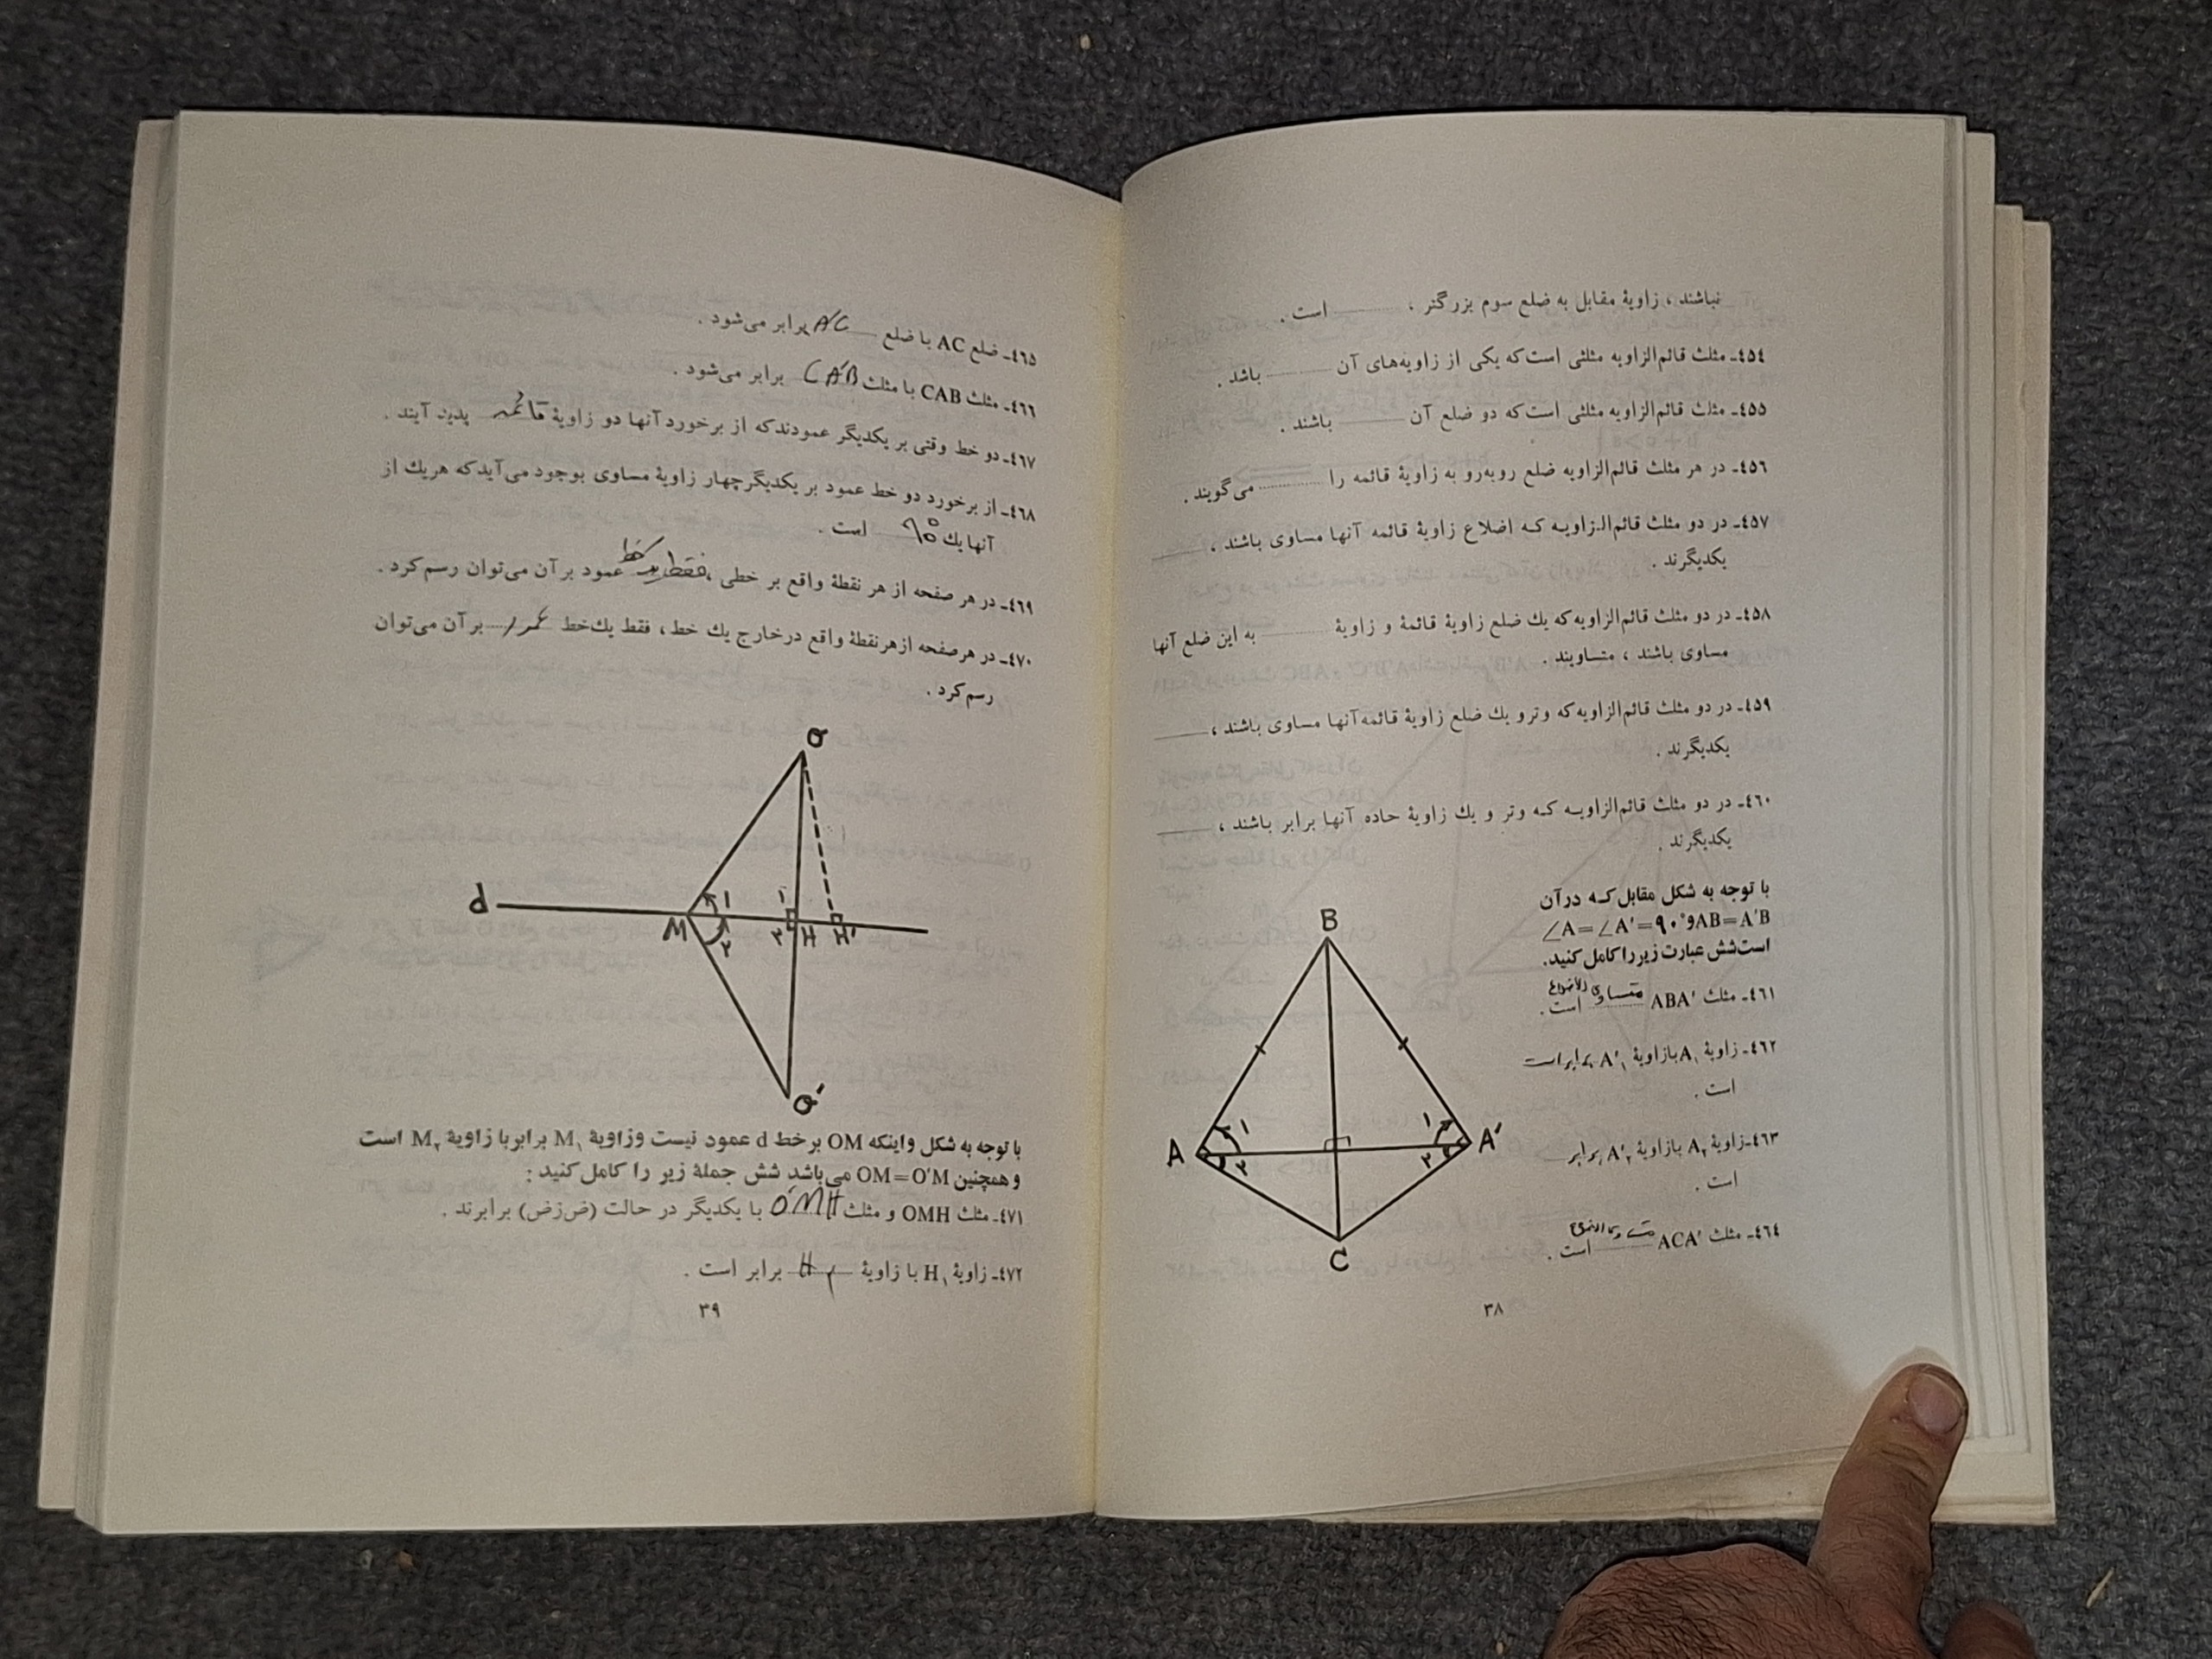 نباشند ، زاویهٔ مقابل به ضلع سوم بزرگتر ، ........ است .
٤٥٤ـ مثلث قائم‌الزاویه مثلثی است‌که یکی از زاویه‌های آن ........ باشد .
٤٥٥ـ مثلث قائم‌الزاویه مثلثی است‌که دو ضلع آن ........ باشند .
٤٥٦ـ در هر مثلث قائم‌الزاویه ضلع روبه‌رو به زاویهٔ قائمه را ........ می‌گویند .
٤٥٧ـ در دو مثلث قائم‌الزاویه که اضلاع زاویهٔ قائمه آنها مساوی باشند ، ........
یکدیگرند .
٤٥٨ـ در دو مثلث قائم‌الزاویه‌که یك ضلع زاویهٔ قائمهٔ و زاویهٔ ........ به این ضلع آنها
مساوی باشند ، متساویند .
٤٥٩ـ در دو مثلث قائم‌الزاویه‌که وترو یك ضلع زاویهٔ قائمه‌آنها مساوی باشند ، ........
یکدیگرند .
٤٦٠ـ در دو مثلث قائم‌الزاویه که وتر و یك زاویهٔ حاده آنها برابر باشند ، ........
یکدیگرند .
با توجه به شکل مقابل‌که درآن
∠A=∠A'=۹۰° و AB=A'B
است‌شش عبارت زیر را کامل کنید.
٤٦١ـ مثلث ABA' متساوی الاضلاع است .
٤٦٢ـ زاویهٔ A₁ بازاویهٔ A'₁ برابراست
است .
٤٦٣ـ زاویهٔ A₂ بازاویهٔ A'₂ برابر
است .
٤٦٤ـ مثلث ACA' ........ است .
B
A ۱ ۲
A' ۱ ۲
C
۳۸
٤٦٥ـ ضلع AC با ضلع A'C برابر می‌شود .
٤٦٦ـ مثلث CAB با مثلث CA'B برابر می‌شود .
٤٦٧ـ دو خط وقتی بر یکدیگر عمودندکه از برخورد آنها دو زاویهٔ قائمه پدید آیند .
٤٦٨ـ از برخورد دو خط عمود بر یکدیگرچهار زاویهٔ مساوی بوجود می‌آیدکه هریك از
آنها یك ۹۰° است .
٤٦٩ـ در هر صفحه از هر نقطهٔ واقع بر خطی ، فقط یک خط عمود برآن می‌توان رسم‌کرد .
٤٧٠ـ در هرصفحه ازهرنقطهٔ واقع درخارج یك خط ، فقط یك‌خط عمود برآن می‌توان
رسم‌کرد .
O
d
M ۱ ۲
۱ ۲ H H'
O'
با توجه به شکل واینکه OM برخط d عمود نیست وزاویهٔ M₁ برابربا زاویهٔ M₂ است
و همچنین OM=O'M می‌باشد شش جملهٔ زیر را کامل‌کنید :
٤٧١ـ مثلث OMH و مثلث O'MH با یکدیگر در حالت (ض‌زض) برابرند .
٤٧٢ـ زاویهٔ H₁ با زاویهٔ H₂ برابر است .
۳۹